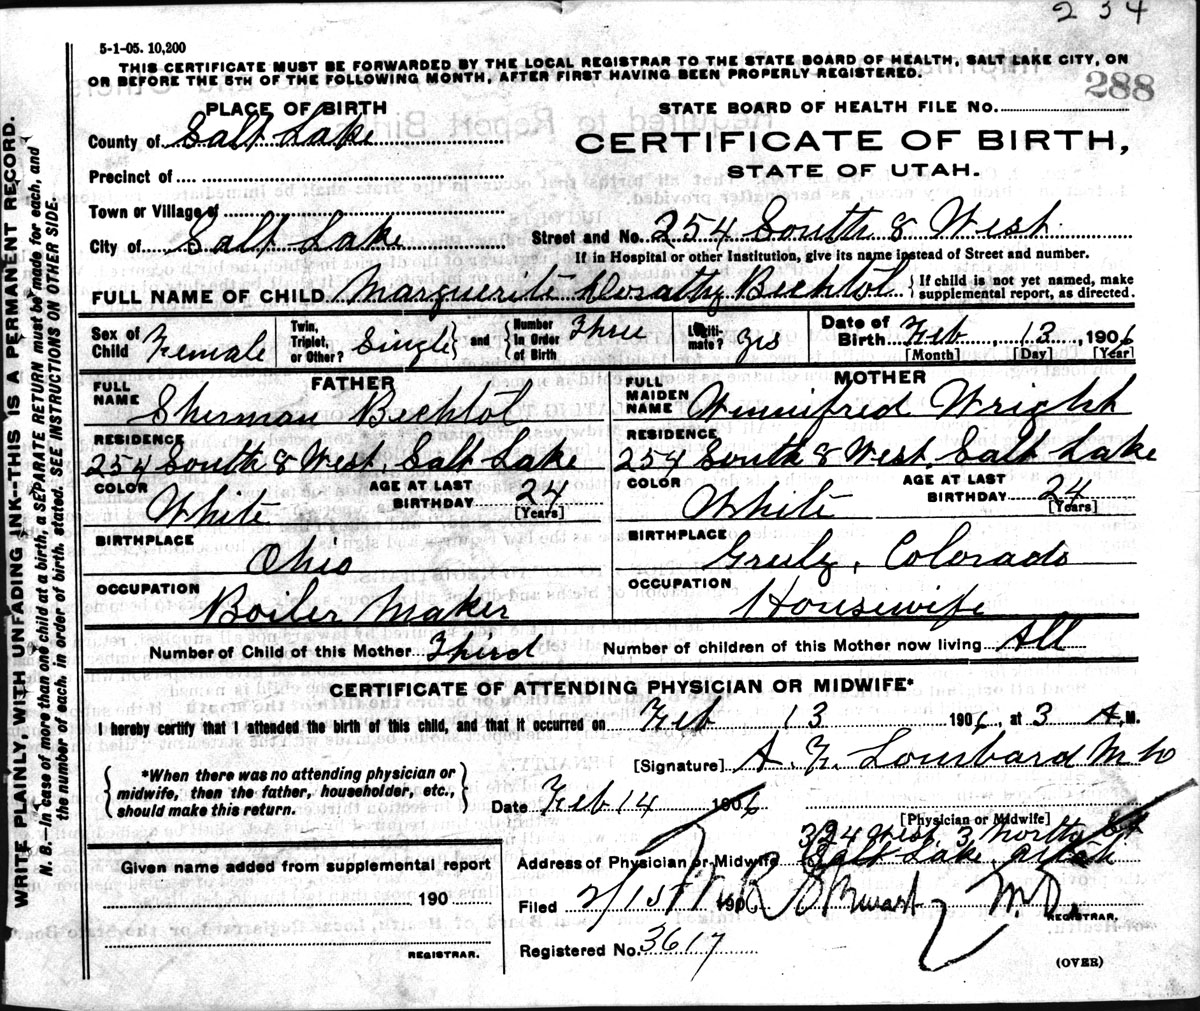 234
5-1-05. 10,200
THIS CERTIFICATE MUST BE FORWARDED BY THE LOCAL REGISTRAR TO THE STATE BOARD OF HEALTH, SALT LAKE CITY, ON
OR BEFORE THE 5TH OF THE FOLLOWING MONTH, AFTER FIRST HAVING BEEN PROPERLY REGISTERED.
288
PLACE OF BIRTH
STATE BOARD OF HEALTH FILE NO.
County of Salt Lake
CERTIFICATE OF BIRTH,
STATE OF UTAH.
Precinct of
Town or Village of
City of Salt Lake Street and No. 254 South 8 West.
If in Hospital or other Institution, give its name instead of Street and number.
FULL NAME OF CHILD Marguerite Dorathy Bechtol {If child is not yet named, make supplemental report, as directed.
Sex of Child Female Twin, Triplet, or Other? Single} and {Number in Order of Birth Three Legitimate? Yes Date of Birth Feb, 13, 1906
[Month] [Day] [Year]
FATHER MOTHER
FULL NAME Sherman Bechtol FULL MAIDEN NAME Winnifred Wright
RESIDENCE RESIDENCE
254 South 8 West, Salt Lake 254 South 8 West, Salt Lake
COLOR White AGE AT LAST BIRTHDAY 24 [Years] COLOR White AGE AT LAST BIRTHDAY 24 [Years]
BIRTHPLACE Ohio BIRTHPLACE Greely, Colorado
OCCUPATION Boiler Maker OCCUPATION Housewife
Number of Child of this Mother Third Number of children of this Mother now living All
CERTIFICATE OF ATTENDING PHYSICIAN OR MIDWIFE*
I hereby certify that I attended the birth of this child, and that it occurred on Feb 13 1906, at 3 A. M.
{*When there was no attending physician or midwife, then the father, householder, etc., should make this return.}
[Signature] A. F. Lombard M D
Date Feb 14 1906
[Physician or Midwife]
324 West 3 North St
Address of Physician or Midwife Salt Lake, Utah
Given name added from supplemental report
190
REGISTRAR.
Filed 2/15 1906 M R Stewart M.D.
REGISTRAR.
Registered No. 3617
(OVER)
WRITE PLAINLY, WITH UNFADING INK--THIS IS A PERMANENT RECORD.
N. B.--In case of more than one child at a birth, a SEPARATE RETURN must be made for each, and
the number of each, in order of birth, stated. SEE INSTRUCTIONS ON OTHER SIDE.